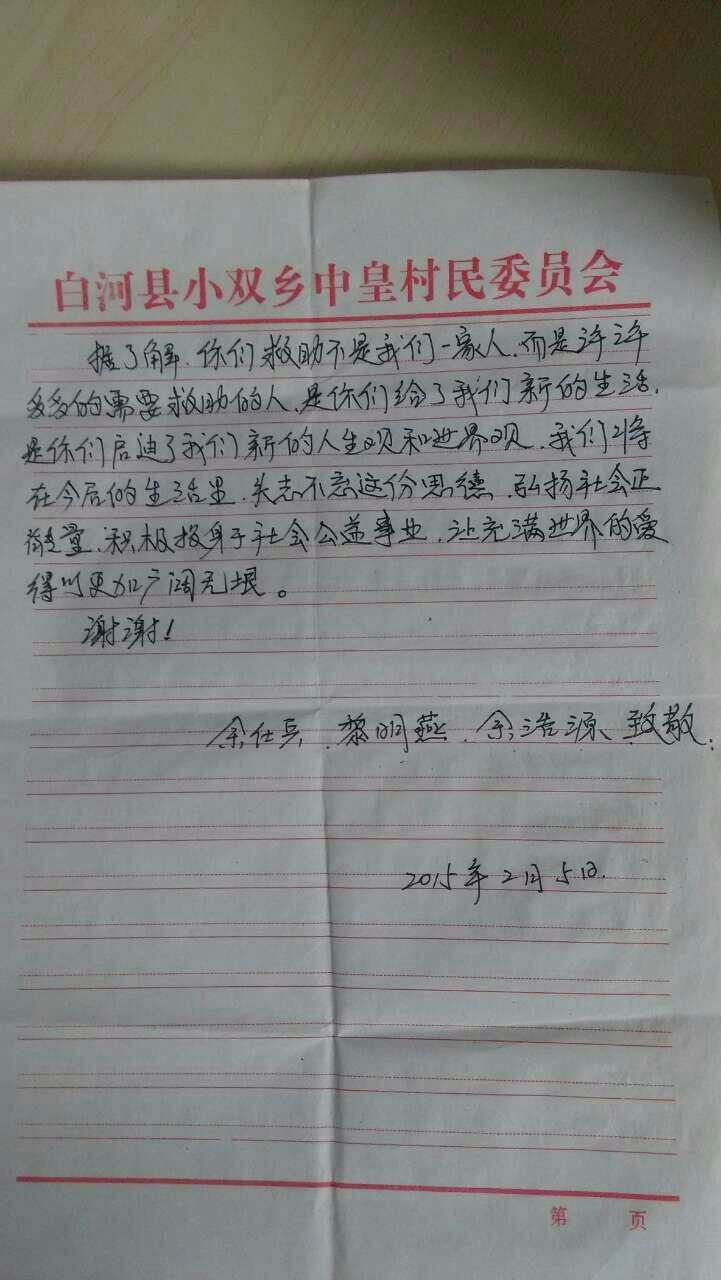 白河县小双乡中皇村民委员会
据了解，你们救助不是我们一家人，而是许许
多多的需要救助的人，是你们给了我们新的生活，
是你们启迪了我们新的人生观和世界观，我们将
在今后的生活里，矢志不忘这份恩德，弘扬社会正
能量，积极投身于社会公益事业，让充满世界的爱
得以更加广阔无垠。
谢谢！
余仕兵、黎明燕、余浩源、致敬
2015年2月5日.
第 页